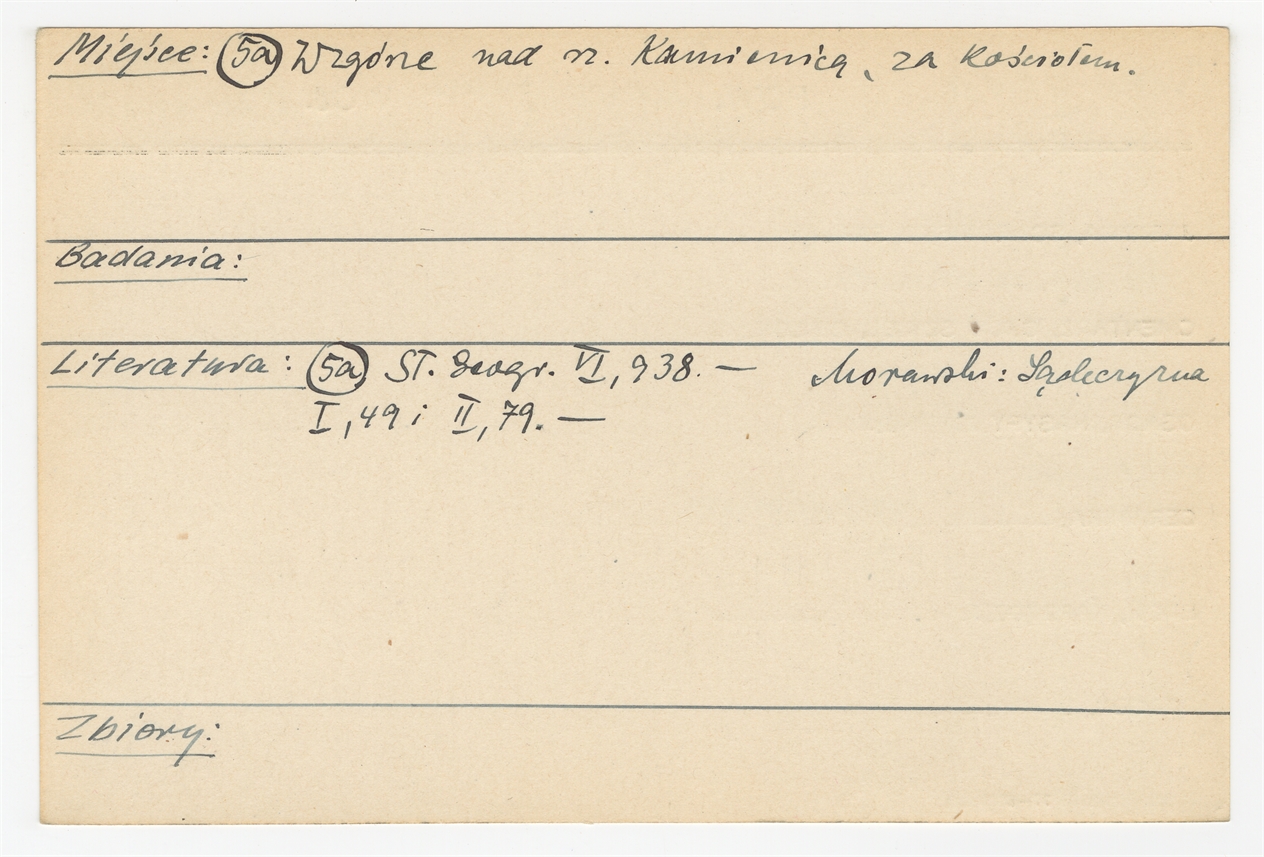 Miejsce: 5a Wzgórze nad rz. Kamienicą, za kościołem.
Badania:
Literatura: 5a Sł. Geogr. VI, 938. — Morawski: Sądecczyzna
I, 49 i II, 79. —
Zbiory: